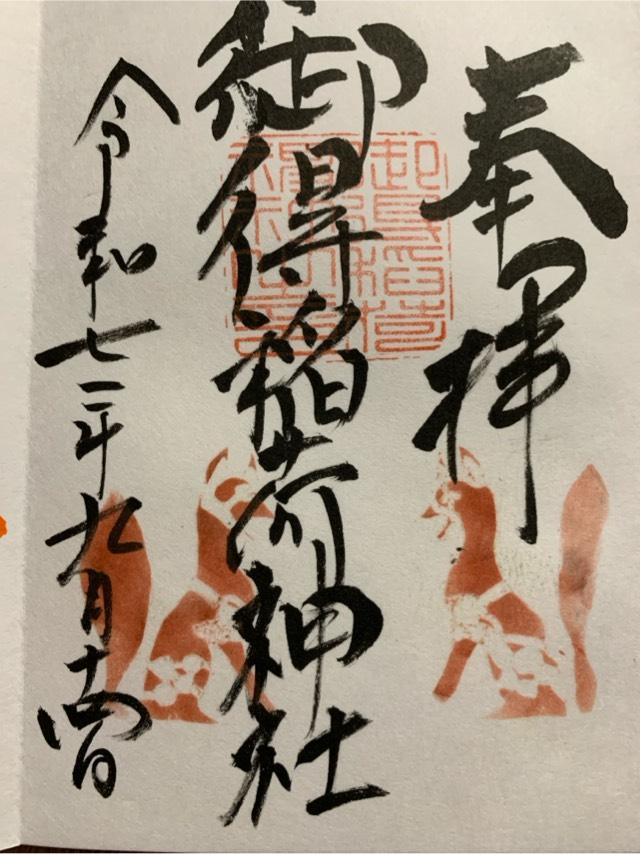 奉拝
御得稲荷神社
令和七年九月十四日